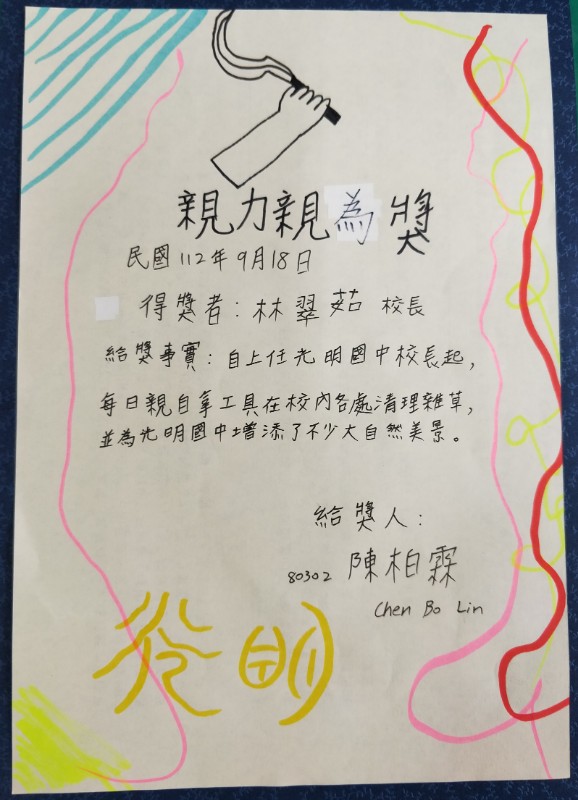 親力親為獎
民國112年9月18日
得獎者：林翠茹 校長
給獎事實：自上任光明國中校長起，
每日親自拿工具在校內各處清理雜草，
並為光明國中增添了不少大自然美景。
給獎人：
80302 陳柏霖
Chen Bo Lin
光明